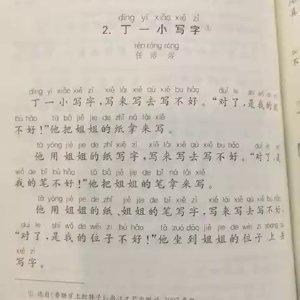 dīng yī xiǎo xiě zì
2. 丁一小写字①
rén róng róng
任溶溶
dīng yī xiǎo xiě zì xiě lái xiě qù xiě bù hǎo duì le shì wǒ de
丁一小写字,写来写去写不好。“对了,是我的
bù hǎo tā bǎ jiě jie de zhǐ ná lái xiě
不好!”他把姐姐的纸拿来写。
tā yòng jiě jie de zhǐ xiě zì xiě lái xiě qù xiě bù hǎo duì le shì
他用姐姐的纸写字,写来写去写不好。“对了,是
wǒ de bǐ bù hǎo tā bǎ jiě jie de bǐ ná lái xiě
我的笔不好!”他把姐姐的笔拿来写。
tā yòng jiě jie de zhǐ jiě jie de bǐ xiě zì xiě lái xiě qù xiě bù hǎo
他用姐姐的纸、姐姐的笔写字,写来写去写不好。
duì le shì wǒ de wèi zi bù hǎo tā zuò dào jiě jie de wèi zi shàng qù
“对了,是我的位子不好!”他坐到姐姐的位子上去
xiě zì
写字。
① 选自